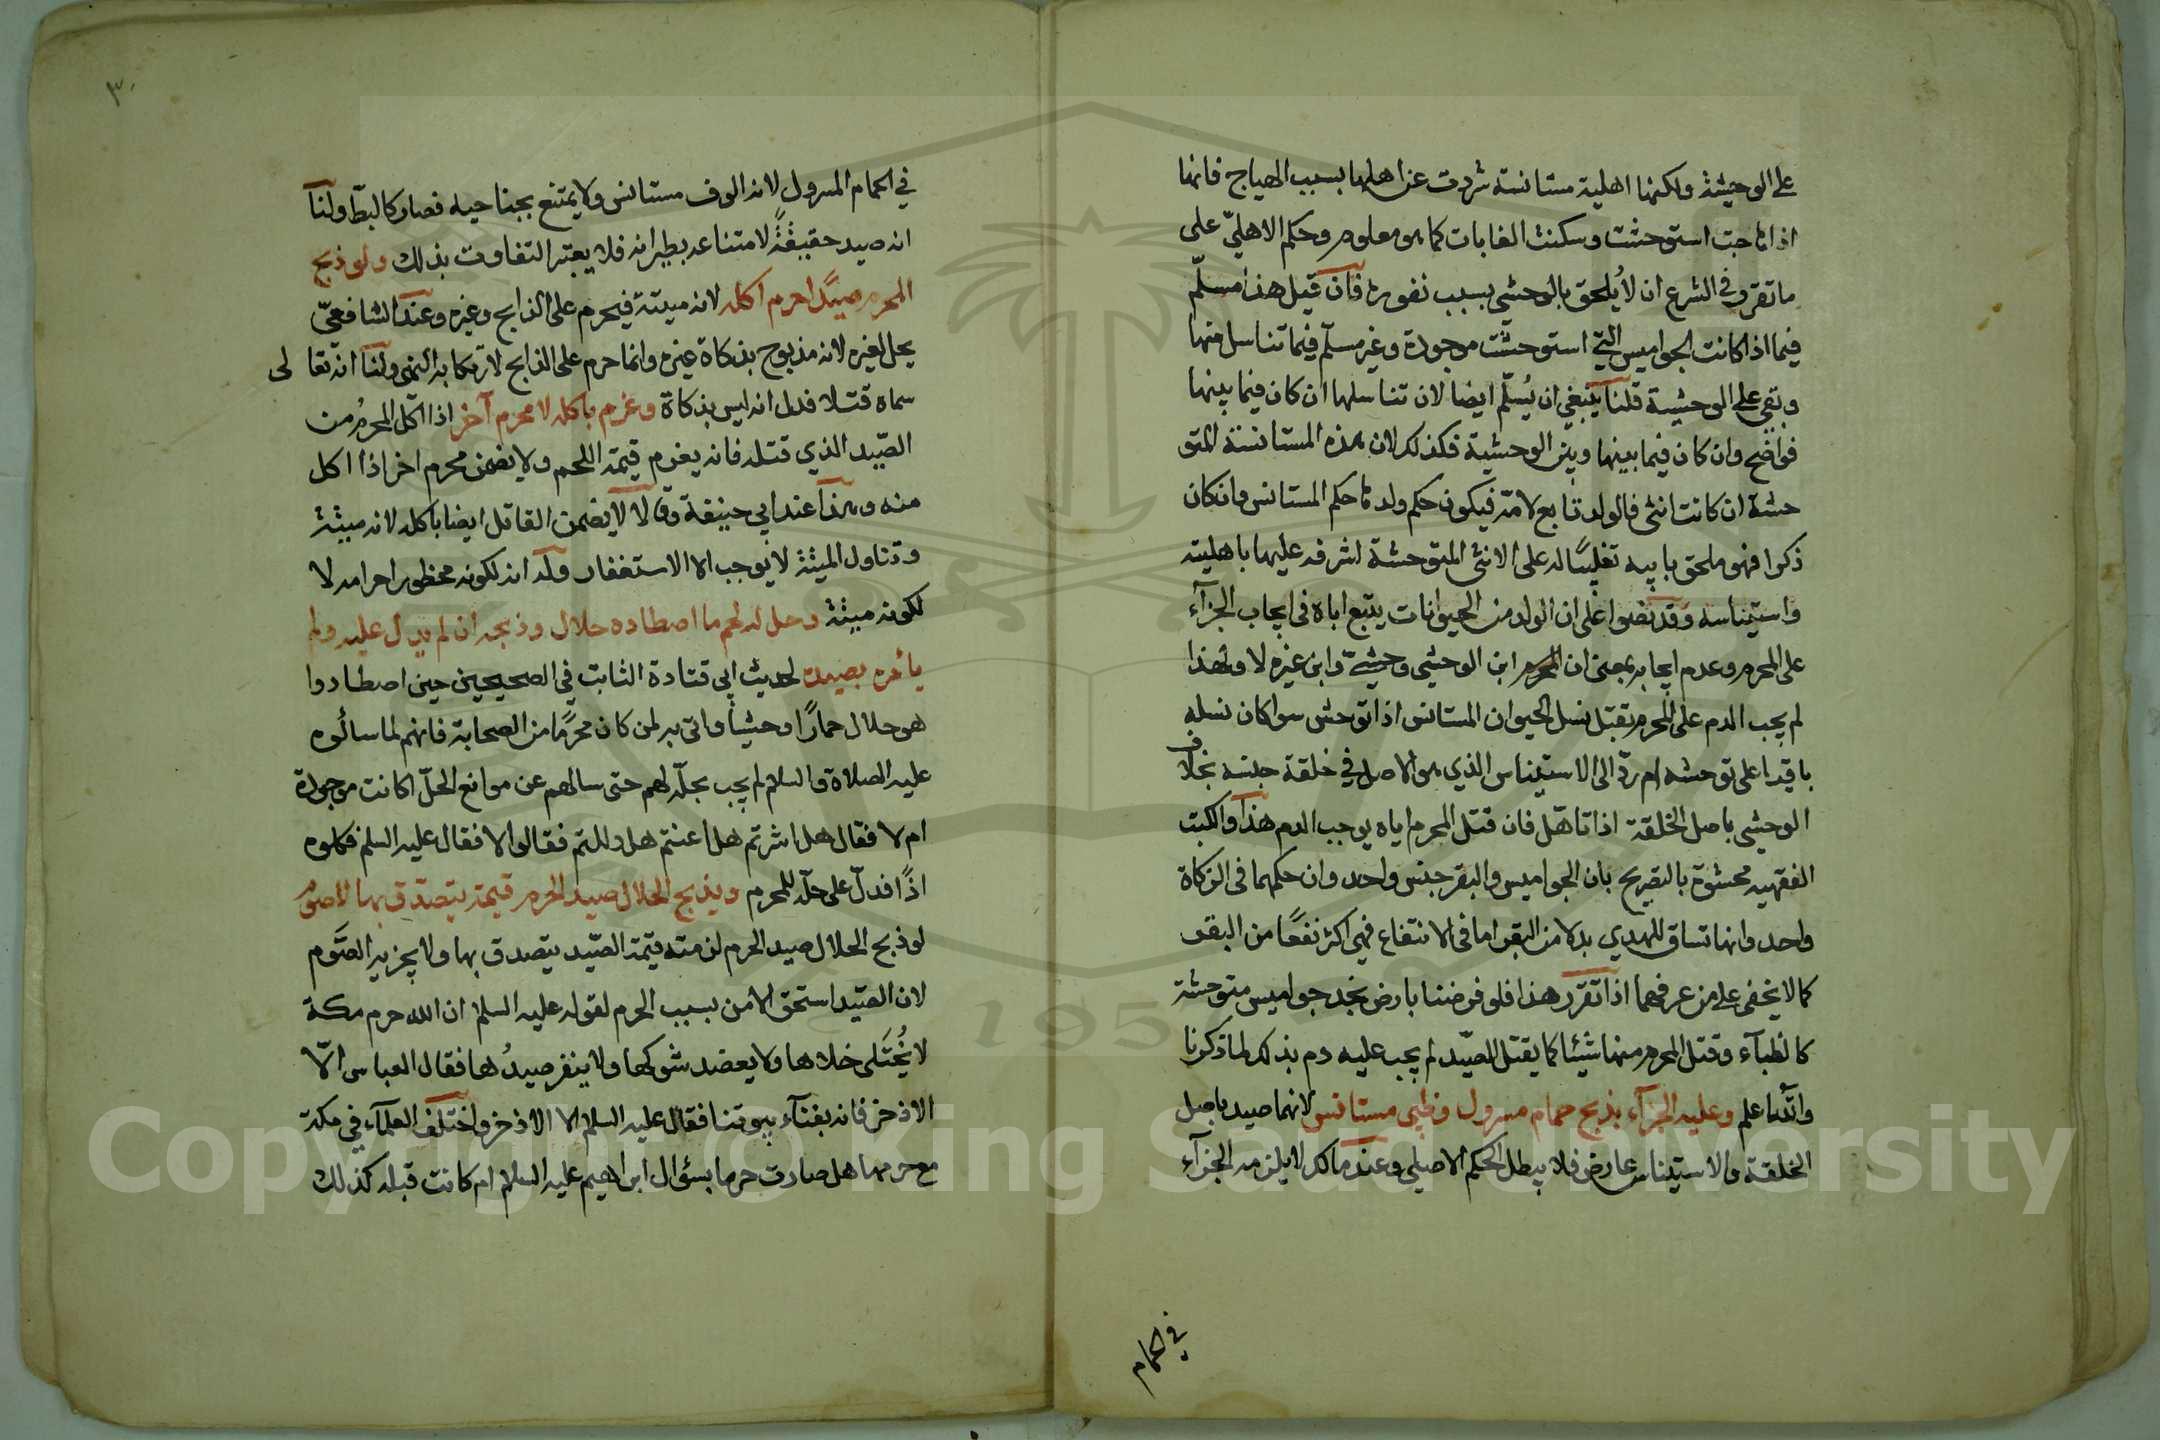 على الوحيشة ولكنها اهلية مستانسة شردت عن اهلها بسبب الهياج فانها
اذا هاجت استوحشت وسكنت الغابات كما هو معلوم وحكم الاهليّ على
ما تقرر في الشرع ان لا يُلحق بالوحشي بسبب نفوره فان قيل هذا مسلّم
فيما اذا كانت الجواميس التي استوحشت موجودة وغير مسلّم فيما تناسل منها
وبقي على الوحشية قلنا ينبغي ان يُسلّم ايضا لان تناسلها ان كان فيما بينها
فواضح وان كان فيما بينها وبين الوحشية فكذلك لان هذه المستانسة المتو
حشة ان كانت انثى فالولد تابع لامّه فيكون حكم ولدها حكم المستانس وان كان
ذكرا فهو ملحق بابيه تغليبًا له على الانثى المتوحشة لشرفه عليها باهليته
واستيناسه وقد نصّوا على ان الولد من الحيوانات يتبع اباه في ايجاب الجزآء
على المحرم وعدم ايجابه بمعنى ان ابن الوحشي وحشيّ وابن غيره لا ولهذا
لم يجب الدم على المحرم بقتل نسل الحيوان المستانس اذا توحش سوا كان نسله
باقيا على توحشه ام ردّ الى الاستيناس الذي هو الاصل في خلقة جنسه بخلاف
الوحشي باصل الخلقة اذا تاهّل فان قتل المحرم اياه يوجب الدم هذا والكتب
الفقهيه محشوّة بالتصريح بان الجواميس والبقر جنس واحد وان حكمهما في الزكاة
واحد وانها تساق للهدي بدلا من البقر اما في الانتفاع فهي اكثر نفعًا من البقر
كما لا يخفى على من عرفهما اذا تقرّر هذا فلو فرضنا بارض نجد جواميس متوحشة
كالظبآء وقتل المحرم منها شيئا كما يقتل الصّيد لم يجب عليه دم بذلك لما ذكرنا
والله اعلم وعليه الجزآء بذبح حمام مسرول وظبي مستانس لانهما صيد باصل
الخلقة والاستيناس عارض فلا يبطل الحكم الاصلي وعند مالك لا يلزمه الجزآء
في الحمام
٣٠
في الحمام المسرول لانه الوف مستانس ولا يمتنع بجناحيه فصار كالبطّ ولنا
انه صيد حقيقةً لامتناعه بطيرانه فلا يعتبر التفاوت بذلك ولو ذبح
المحرم صيدًا حرم اكله لانه ميتة فيحرم على الذابح وغيره وعند الشافعيّ
يحل لغيره لانه مذبوح بذكاة غيره وانما حرم على الذابح لارتكابه النهي ولنا انه تعا لى
سماه قتلا فدل انه ليس بذكاة وغرم باكله لا محرم آخر اذا اكل المحرمُ من
الصّيد الذي قتله فانه يغرم قيمة اللحم ولا يضمن محرم اخر اذا اكل
منه وهذا عند ابي حنيفة وقالا لا يضمن القاتل ايضا باكله لانه ميتة
وتناول الميتة لا يوجب الا الاستغفار وله انه لكونه محظور احرامه لا
لكونه ميتة وحل له لحم ما اصطاده حلال وذبحه ان لم يدل عليه ولم
يأمره بصيده لحديث ابي قتادة الثابت في الصحيحين حين اصطادوا
هو حلال حمارًا وحشيًا واتى به لمن كان محرمًا من الصحابة فانهم لما سالُوه
عليه الصلاة والسلام لم يجب بحلّه لهم حتى سالهم عن موانع الحلّ اكانت موجودة
ام لا فقال هل اشرتم هل اعنتم هل دللتم فقالوا لا فقال عليه السلم فكلوه
اذًا فدلّ على حلّه للمحرم ويذبح الحلال صيد الحرم قيمة يتصدق بها لا صوم
لو ذبح الحلال صيد الحرم لزمته قيمة الصّيد يتصدق بها ولا يجزيه الصّوم
لان الصّيد استحق الامن بسبب الحرم لقوله عليه السلم ان الله حرم مكة
لا يُختَلى خلاها ولا يعضد شوكها ولا ينفر صيدُها فقال العباس الّا
الاذخر فانه بفنآء بيوتنا فقال عليه السلام الا الاذخر واختلف العلمآء في مكة
مع حرمها هل صارت حرما بسئوال ابراهيم عليه السلام ام كانت قبله كذلك
Copyright © King Saud University
1957